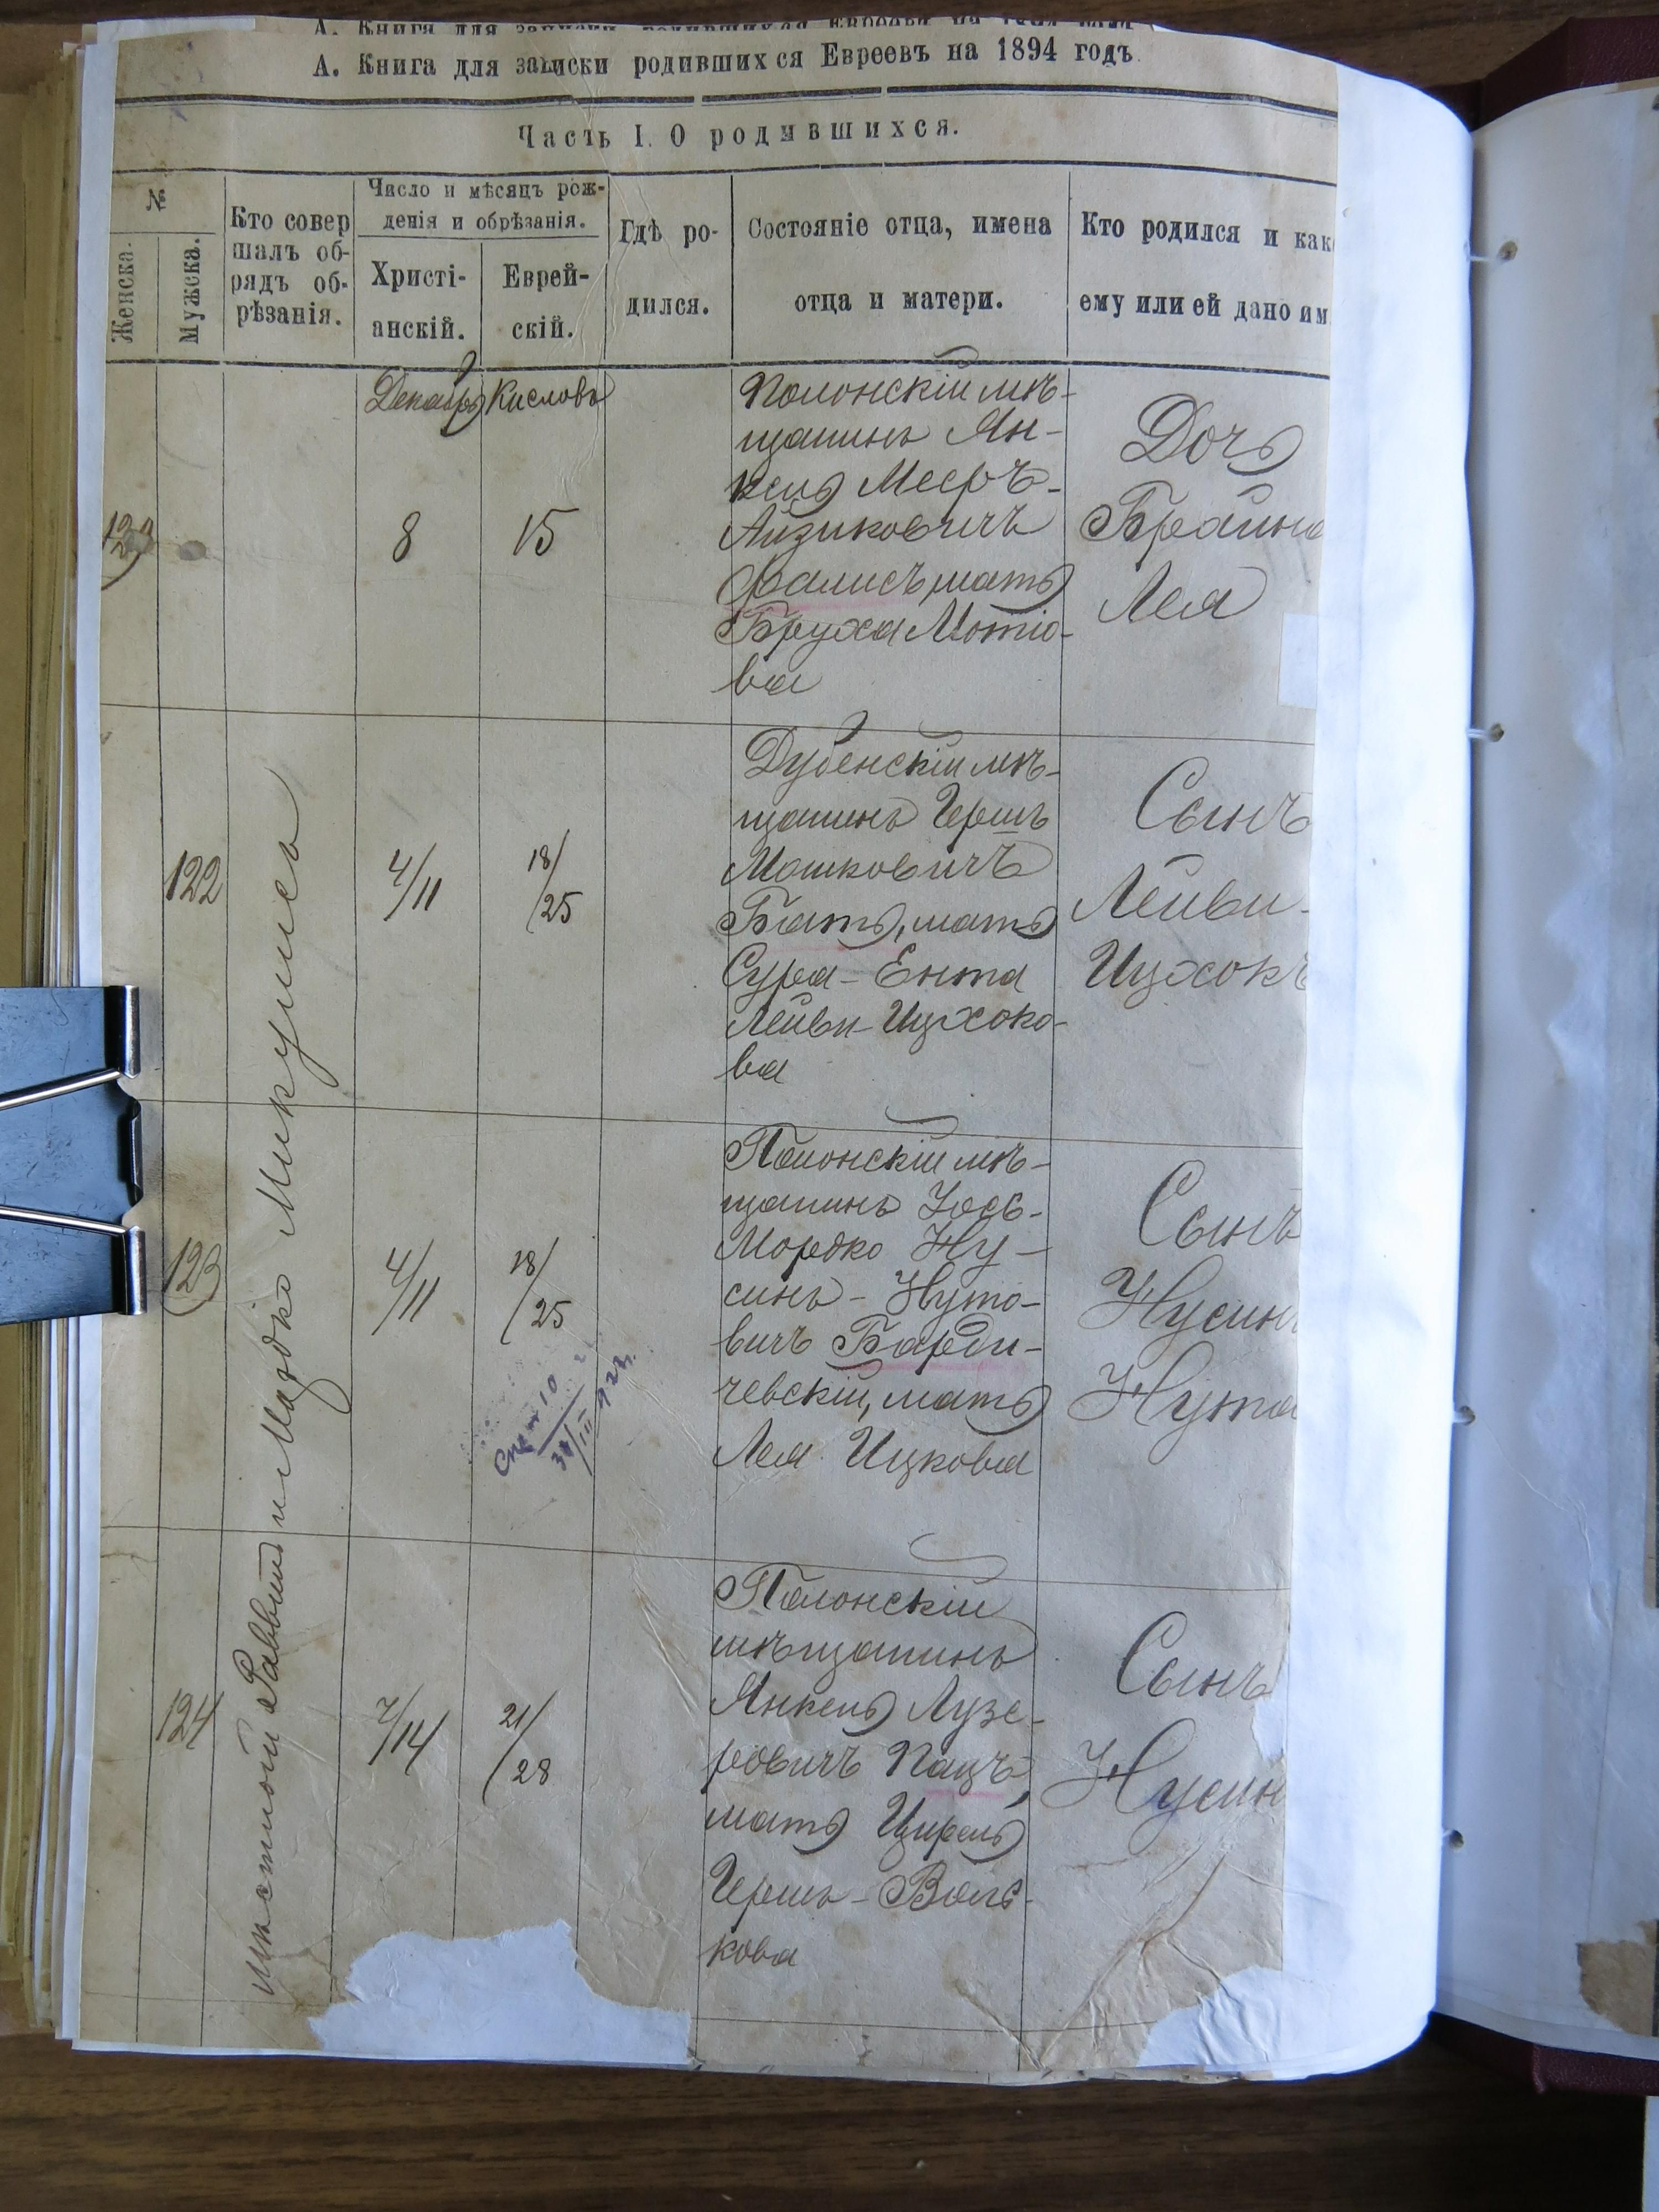 А. Книга для записки родившихся Евреевъ на 1894 годъ.
Часть I. О родившихся.
№
Женска.
Мужеска.
Кто совер
шалъ об-
рядъ об-
рѣзанія.
Число и мѣсяцъ рож-
денія и обрѣзанія.
Христі-
анскій.
Еврей-
скій.
Гдѣ ро-
дился.
Состояніе отца, имена
отца и матери.
Кто родился и как
ему или ей дано им
Декабрь
Кислевъ
8
15
Полонскій мѣ-
щанинъ Ян-
кель Мееръ-
Айзиковичъ
мать
Бруха Мотіо-
ва
Дочь
Брайна
Лея
122
4/11
18/
/25
Дубенскій мѣ-
щанинъ Гершъ
Мошковичъ
Бать, мать
Сура-Ента
Лейви-Ицхоко-
ва
Сынъ
Лейви-
Ицхокъ
123
4/11
18/
/25
Полонскій мѣ-
щанинъ Іось-
Мордко Ну-
синъ-Нуто-
вичъ Барди-
чевскій, мать
Лея Ицкова
Сынъ
Нусинъ
Нута
124
7/14
21/
/28
Полонскій
мѣщанинъ
Янкель Лузе-
ровичъ Пацъ,
мать Цирель
Гершъ-Воль-
кова
Сынъ
Нусин
мѣстной Раввинъ и Мордко Микулисъ